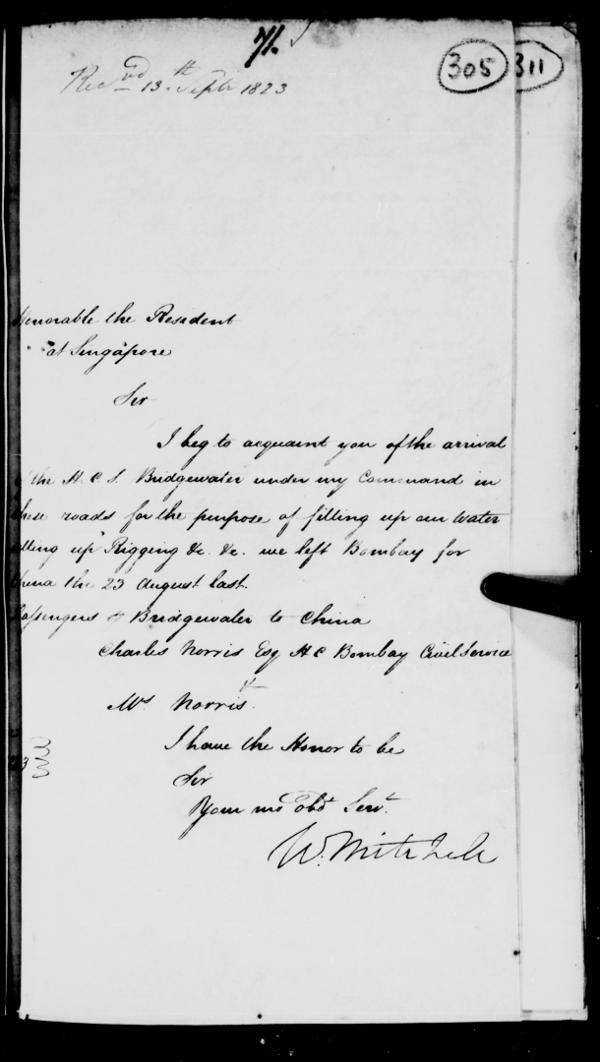 71.
305
311
Rec.ed 13.th Septr 1823
Honorable the Resident
at Singapore
Sir
I beg to acquaint you of the arrival
of the H. C. S. Bridgewater under my Command in
these roads for the purpose of filling up our Water
setting up Rigging &c. &c. we left Bombay for
China the 23 August last.
Passengers Bridgewater to China
Charles Norris Esq H C Bombay Civil Service
&
Mrs Norris.
I have the Honor to be
Sir
Your mo Obdt Servt.
W. Mitchell